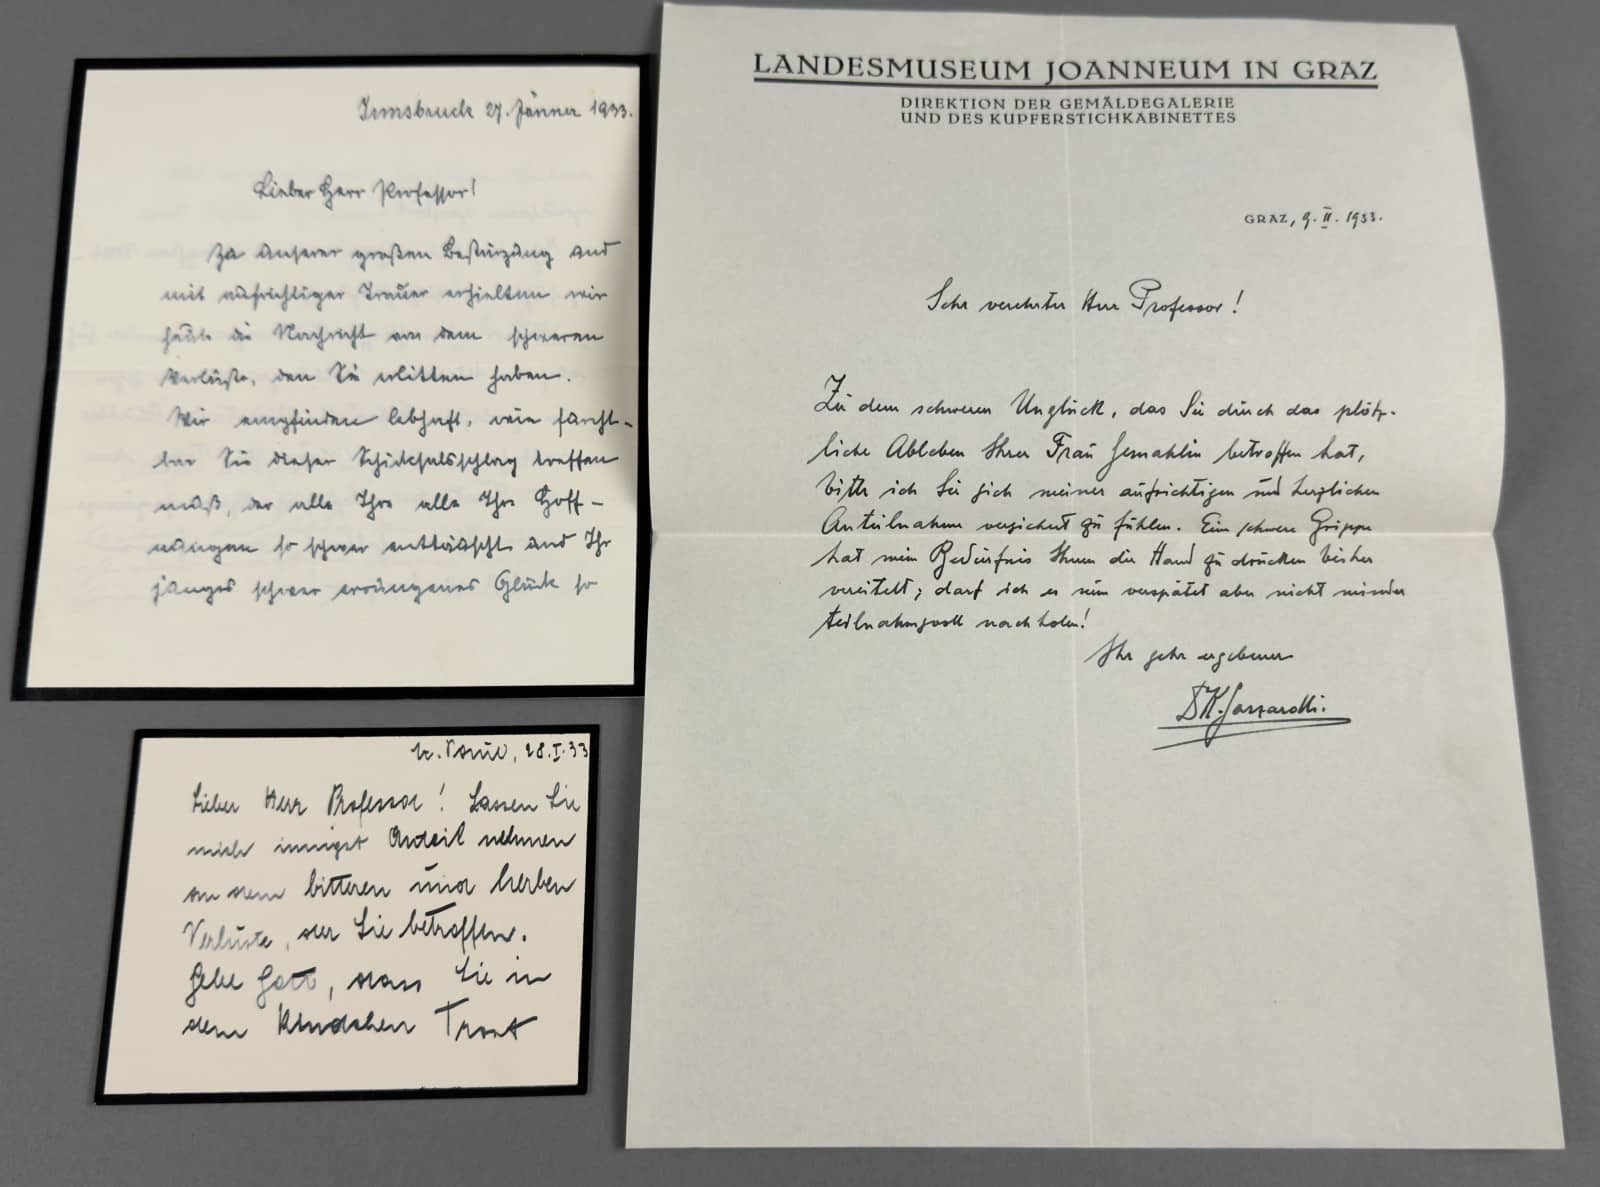 Innsbruck 27. Jänner 1933.
Lieber Herr Professor!
Zu unserer großen Bestürzung und
mit aufrichtiger Trauer erhielten wir
heute die Nachricht von dem schweren
Verluste, den Sie erlitten haben.
Wir empfinden lebhaft, wie furcht-
bar Sie dieser Schicksalsschlag treffen
muß, der alle Ihre alle Ihre Hoff-
nungen so schwer enttäuscht und Ihr
junges schwer errungenes Glück so
28.I.33
Lieber Herr Professor! Lassen Sie
mich innigst Anteil nehmen
an dem bitteren und herben
Verluste, der Sie betroffen.
Gebe Gott, dass Sie in
dem Kindchen Trost
LANDESMUSEUM JOANNEUM IN GRAZ
DIREKTION DER GEMÄLDEGALERIE
UND DES KUPFERSTICHKABINETTES
GRAZ, 9. II. 1933.
Sehr verehrter Herr Professor!
Zu dem schweren Unglück, das Sie durch das plötz-
liche Ableben Ihrer Frau Gemahlin betroffen hat,
bitte ich Sie sich meiner aufrichtigen und herzlichen
Anteilnahme versichert zu fühlen. Eine schwere Grippe
hat mein Bedürfnis Ihnen die Hand zu drücken bisher
vereitelt; darf ich es nun verspätet aber nicht minder
teilnahmsvoll nachholen!
Ihr sehr ergebener
Dr K. Garzarolli.